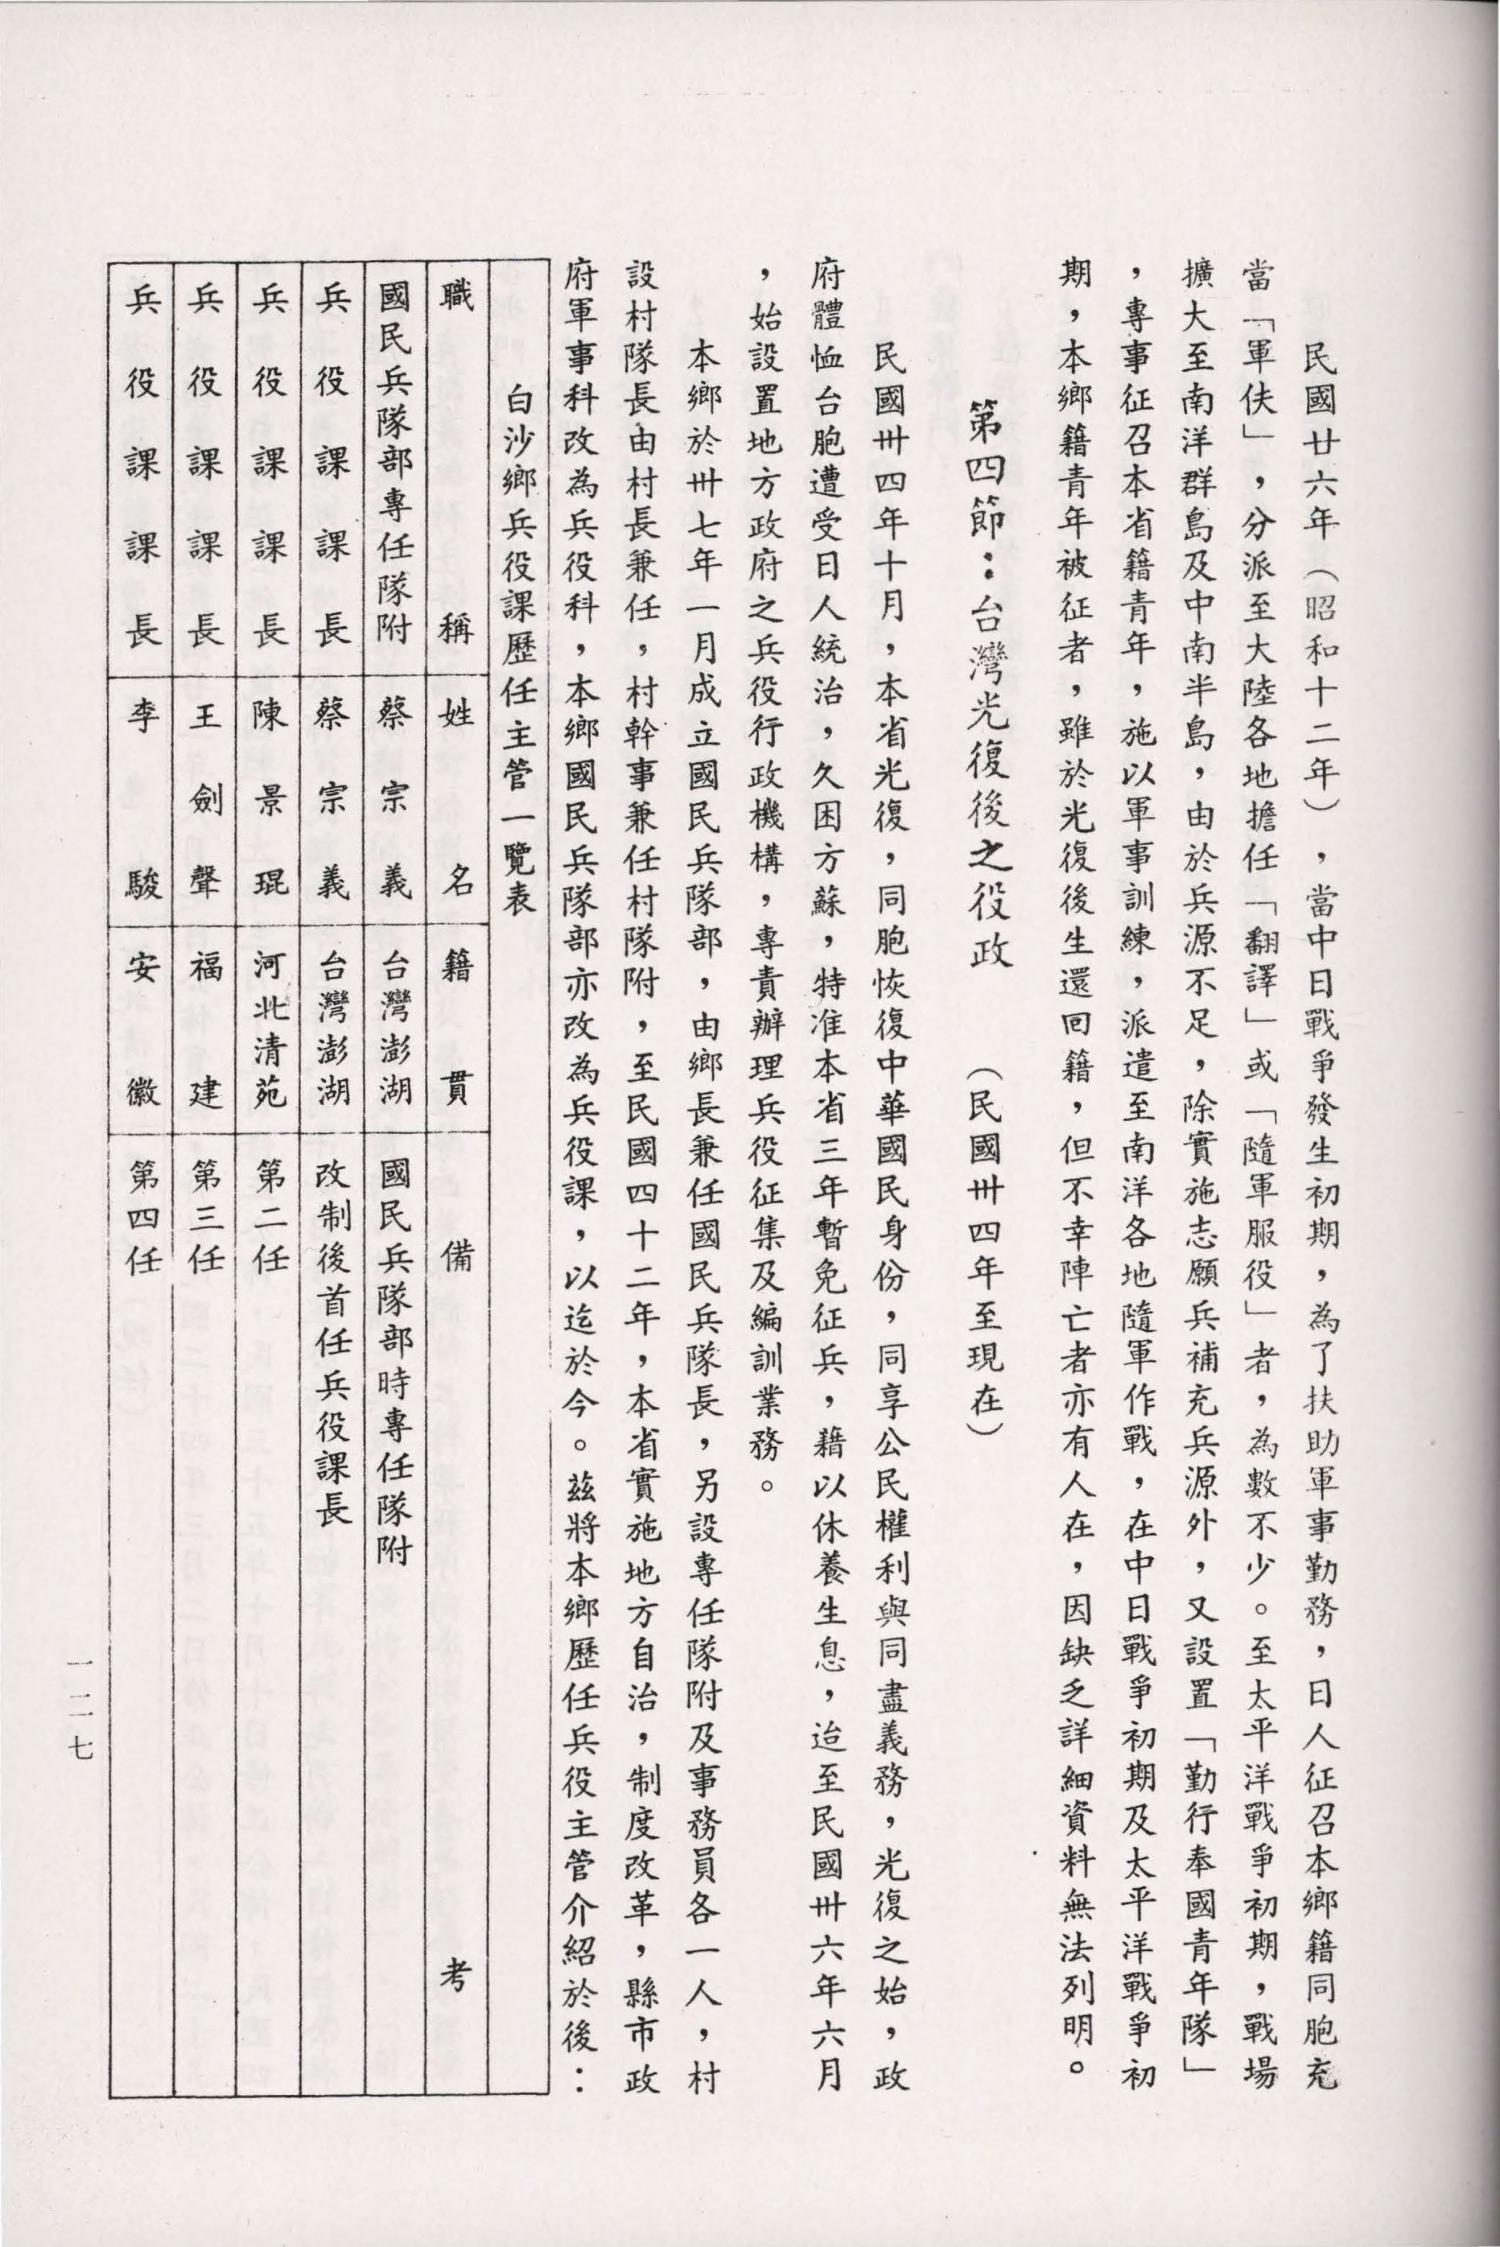 民國廿六年（昭和十二年），當中日戰爭發生初期，為了扶助軍事勤務，日人征召本鄉籍同胞充
當「軍伕」，分派至大陸各地擔任「翻譯」或「隨軍服役」者，為數不少。至太平洋戰爭初期，戰場
擴大至南洋群島及中南半島，由於兵源不足，除實施志願兵補充兵源外，又設置「勤行奉國青年隊」
，專事征召本省籍青年，施以軍事訓練，派遣至南洋各地隨軍作戰，在中日戰爭初期及太平洋戰爭初
期，本鄉籍青年被征者，雖於光復後生還回籍，但不幸陣亡者亦有人在，因缺乏詳細資料無法列明。
第四節：台灣光復後之役政　（民國卅四年至現在）
民國卅四年十月，本省光復，同胞恢復中華國民身份，同享公民權利與同盡義務，光復之始，政
府體恤台胞遭受日人統治，久困方蘇，特准本省三年暫免征兵，藉以休養生息，迨至民國卅六年六月
，始設置地方政府之兵役行政機構，專責辦理兵役征集及編訓業務。
本鄉於卅七年一月成立國民兵隊部，由鄉長兼任國民兵隊長，另設專任隊附及事務員各一人，村
設村隊長由村長兼任，村幹事兼任村隊附，至民國四十二年，本省實施地方自治，制度改革，縣市政
府軍事科改為兵役科，本鄉國民兵隊部亦改為兵役課，以迄於今。茲將本鄉歷任兵役主管介紹於後：
白沙鄉兵役課歷任主管一覽表
職稱　姓名　籍貫　備考
國民兵隊部專任隊附　蔡宗義　台灣澎湖　國民兵隊部時專任隊附
兵役課課長　蔡宗義　台灣澎湖　改制後首任兵役課長
兵役課課長　陳景琨　河北清苑　第二任
兵役課課長　王劍聲　福建　第三任
兵役課課長　李駿　安徽　第四任
一二七